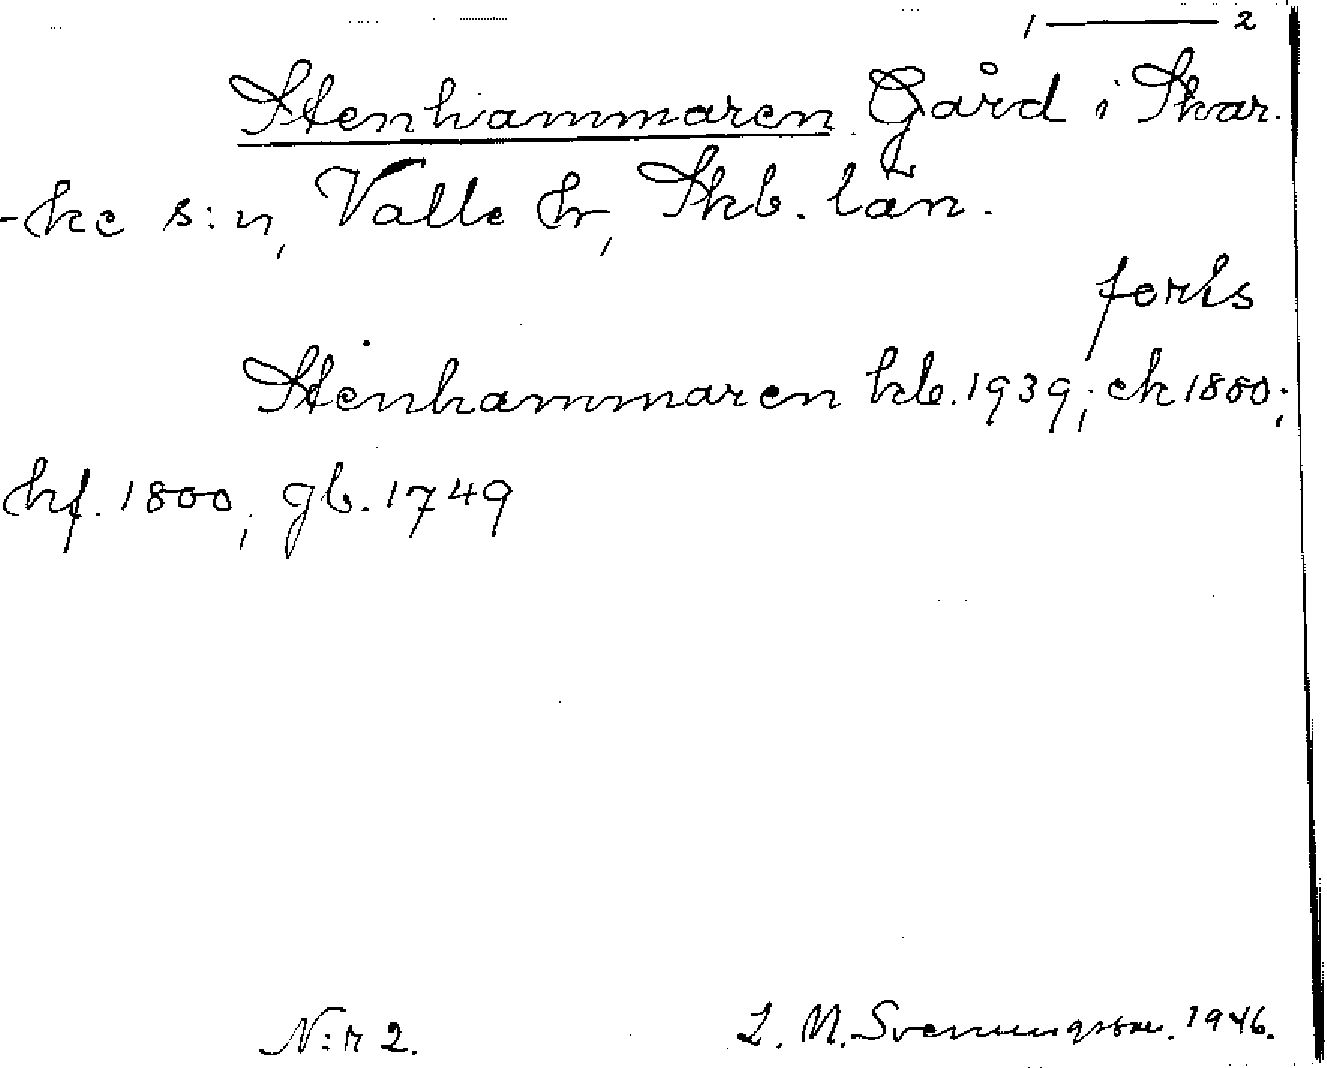 1 — 2
Stenhammaren Gård i Skar-
-ke s:n, Valle hr, Skb. län.
forts
Stenhammaren kb. 1939; ek 1880;
hf. 1800; gb. 1749
N:r 2. L. M. Svenungsson. 1946.